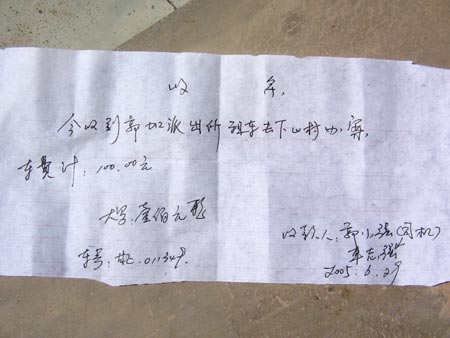 收 条
今收到郭 派出所租车去下山村办案,
车费计: 100.00元
大写: 壹佰元整
收款人: 郭小强(司机)
车号: 011349.
2005.6.29